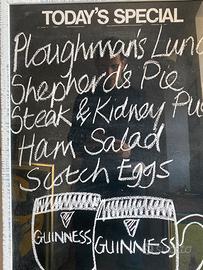 TODAY'S SPECIAL
Ploughman's Lunc
Shepherd's Pie
Steak & Kidney Pu
Ham Salad
Scotch Eggs
GUINNESS GUINNESS